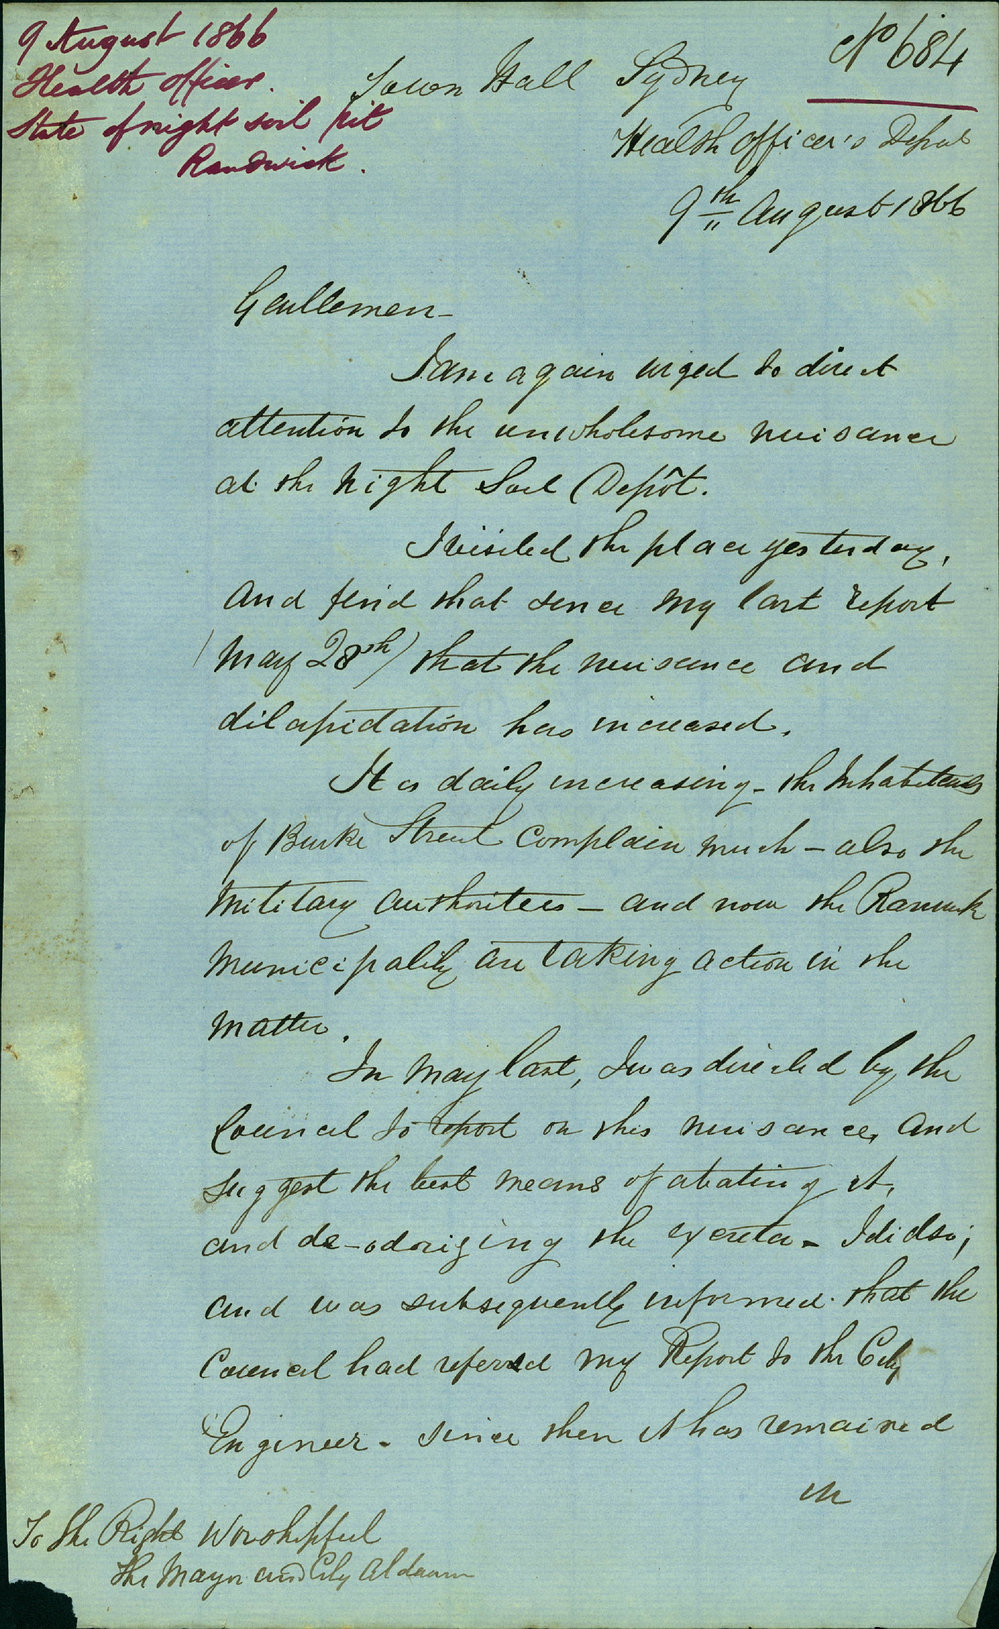 9 August 1866
Health officer.
State of night soil pit
Randwick.
No 684
Town Hall Sydney
Health Officer's Depat
9th August 1866
Gentlemen -
I am again urged to direct
attention to the unwholesome nuisance
at the Night Soil Depôt.
I visited the place yesterday,
and find that since my last report
(May 28th) that the nuisance and
dilapidation has increased.
It is daily increasing - the Inhabitants
of Burke Street complain much - also the
Military authorities - and now the Ranwick
Municipality are taking action in the
matter.
In May last, I was directed by the
Council to report on this nuisance, and
suggest the best means of abating it,
and de-odorizing the excreta - I did so;
and was subsequently informed that the
Council had referred my Report to the City
Engineer - since then it has remained
in
To the Right Worshipful
The Mayor and City Aldermen